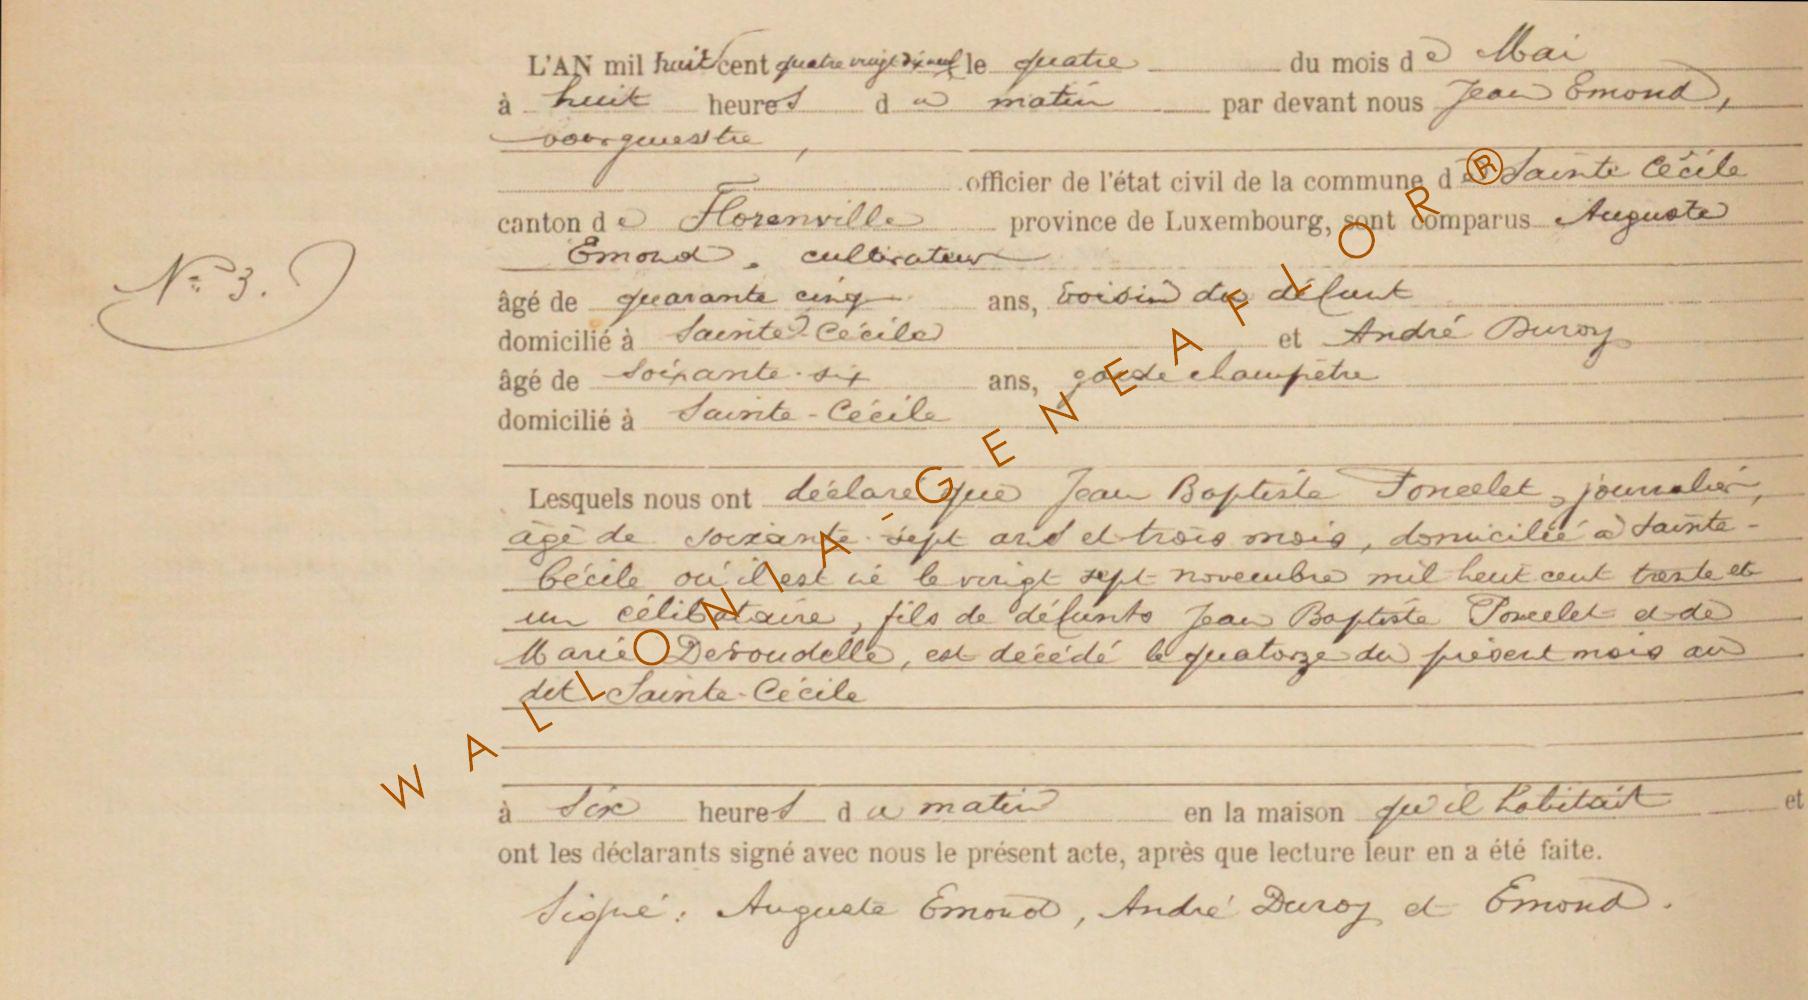 L'AN mil huit cent quatre vingt dix neuf le quatre du mois de Mai
à huit heures du matin par devant nous Jean Emond,
bourgmestre,
officier de l'état civil de la commune de Sainte Cécile
canton de Florenville province de Luxembourg, sont comparus Auguste
Emond, cultivateur
N° 3.
âgé de quarante cinq ans, voisin du défunt
domicilié à Sainte-Cécile et André Duroy
âgé de soixante-six ans, garde champêtre
domicilié à Sainte-Cécile
Lesquels nous ont déclaré que Jean Baptiste Poncelet, journalier,
âgé de soixante-sept ans et trois mois, domicilié à Sainte-
Cécile où il est né le vingt sept novembre mil huit cent trente et
un célibataire, fils de défunts Jean Baptiste Poncelet et de
Marie Devoudelle, est décédé le quatorze du présent mois au
dit Sainte-Cécile
à six heures du matin en la maison qu'il habitait et
ont les déclarants signé avec nous le présent acte, après que lecture leur en a été faite.
Signé: Auguste Emond, André Duroy et Emond.
WALLONIA-GENEAFLOR®